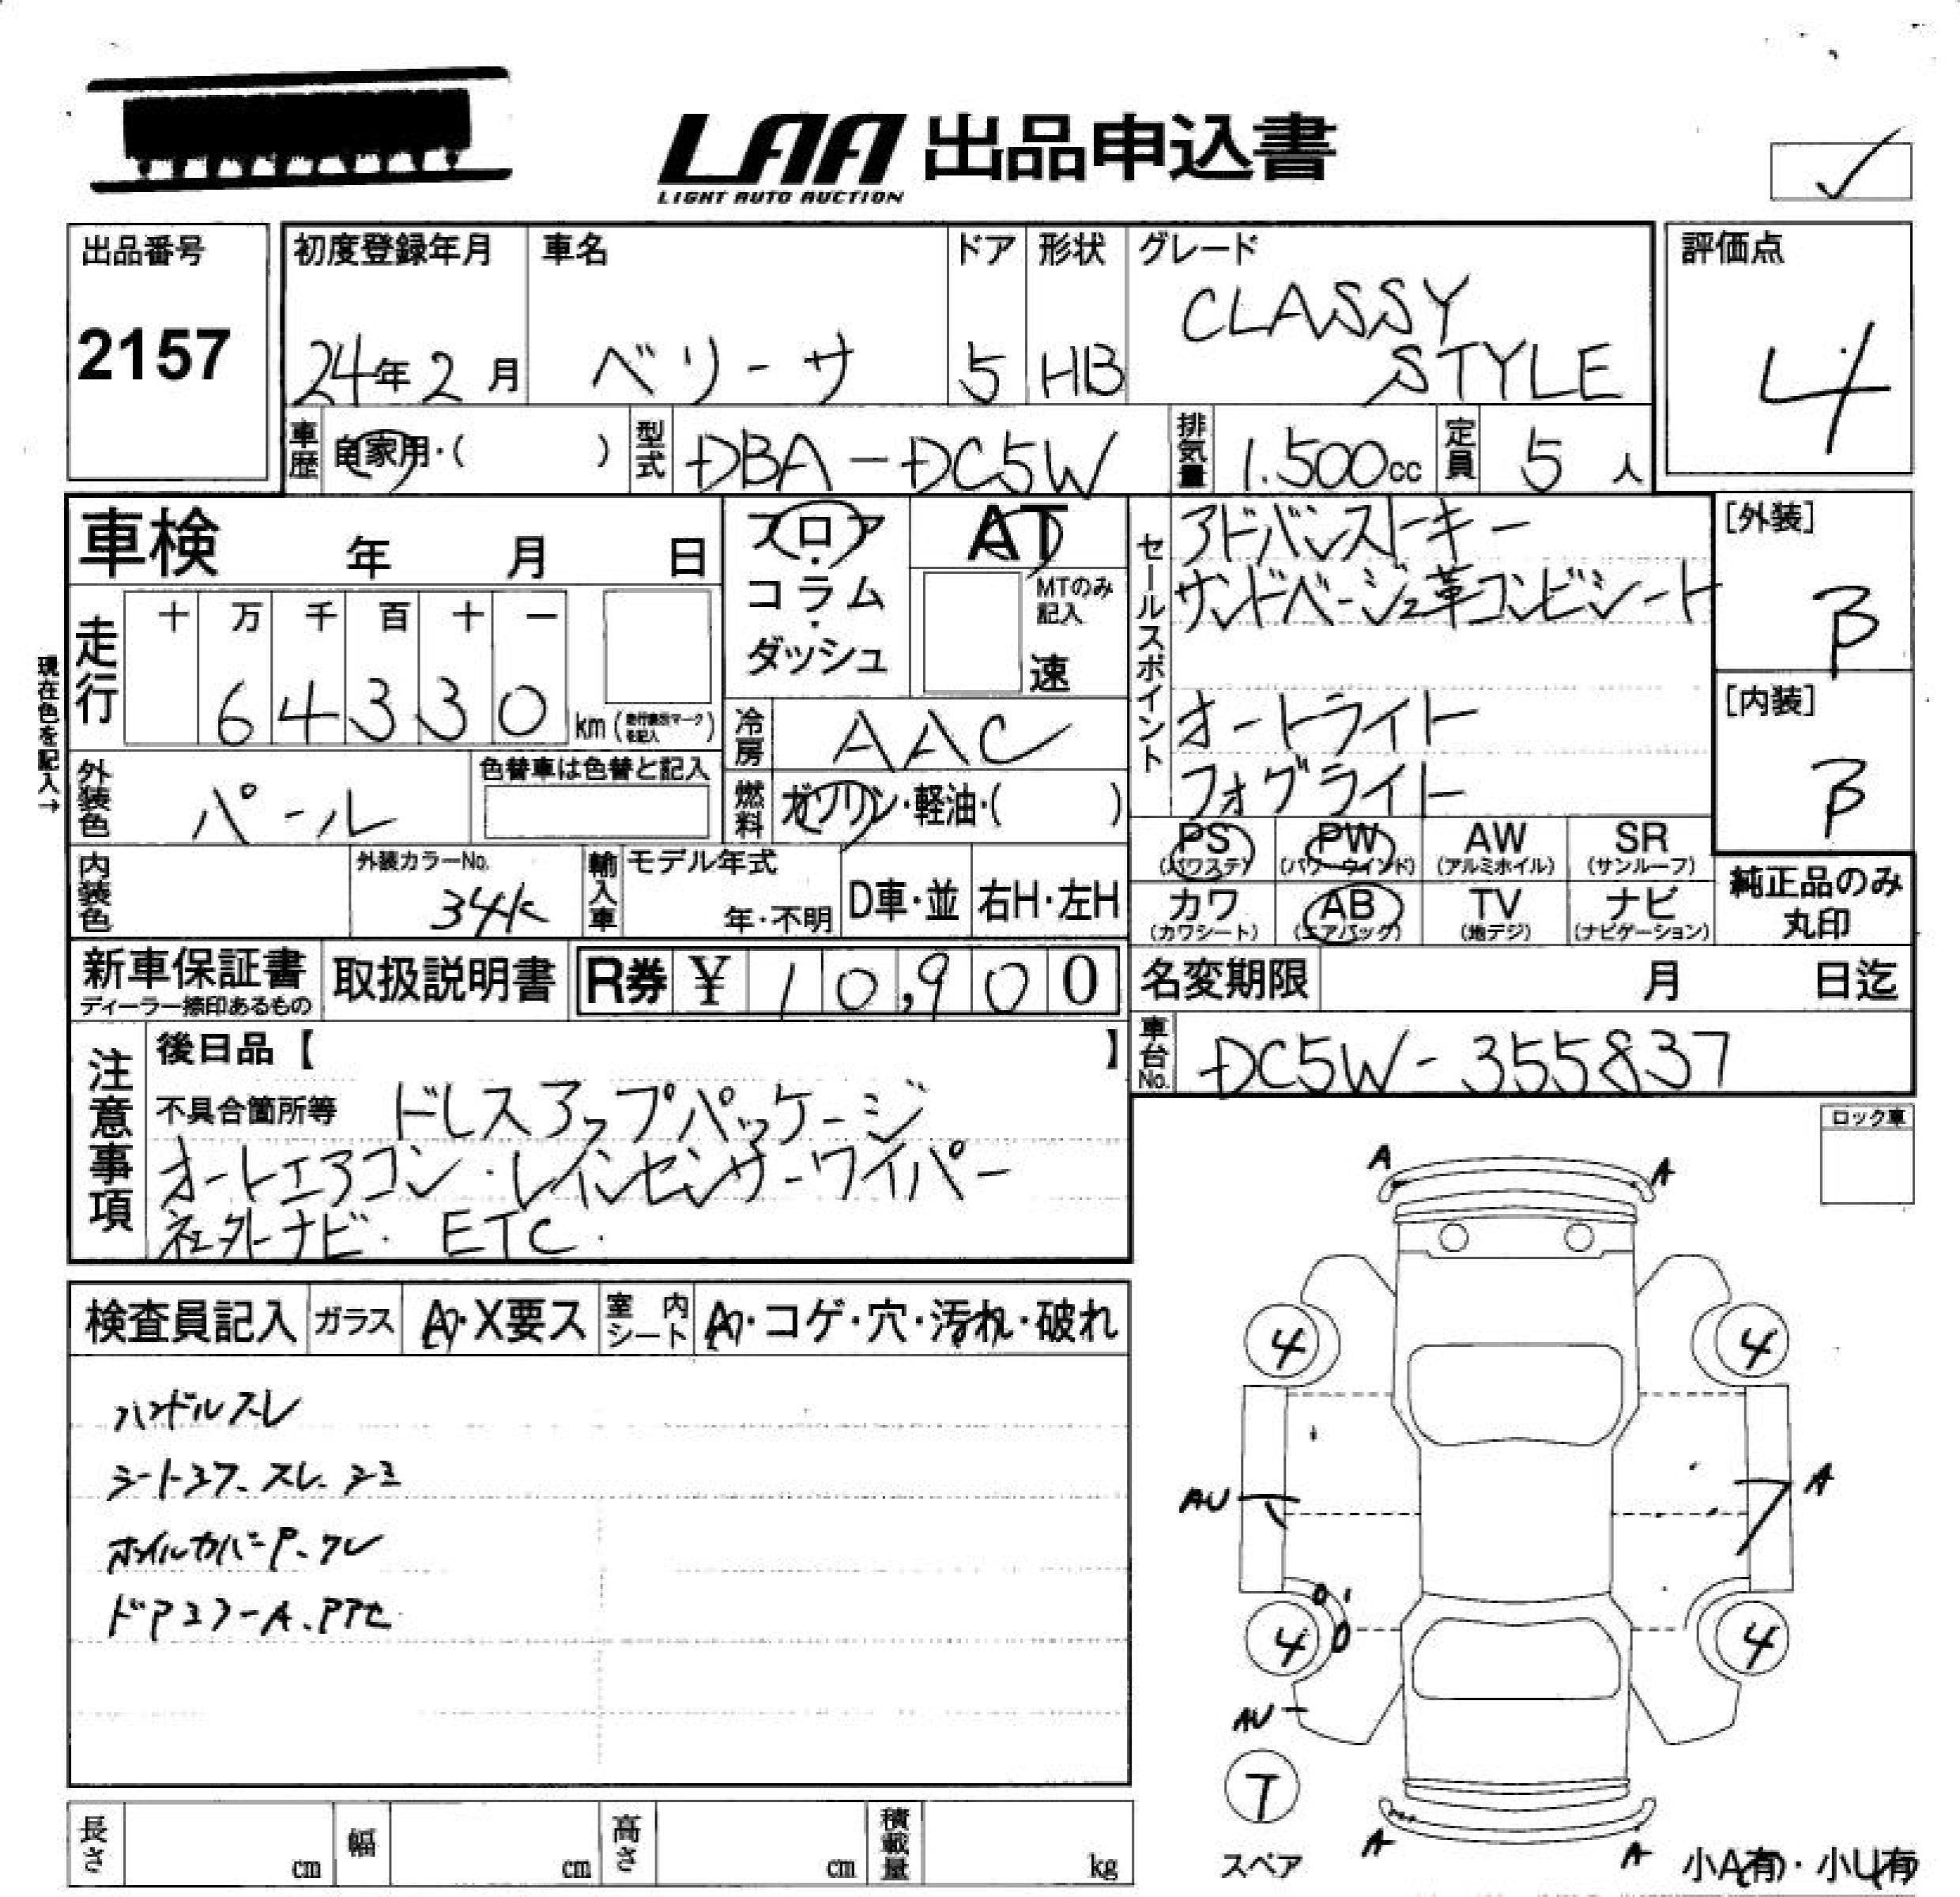 LAA 出品申込書
LIGHT AUTO AUCTION
出品番号
2157
初度登録年月
24年2月
車名
ベリーサ
ドア
5
形状
HB
グレード
CLASSY
STYLE
評価点
4
車歴
自家用・( )
型式
DBA-DC5W
排気量
1.500cc
定員
5人
車検 年 月 日
フロア
・
コラム
・
ダッシュ
AT
MTのみ
記入
速
セールスポイント
アドバンストキー
サンドベージュ革コンビシート
オートライト
フォグライト
[外装]
B
[内装]
B
現在色を記入→
走行
十 万 千 百 十 一
6 4 3 3 0 km
冷房
AAC
外装色
パール
色替車は色替と記入
燃料
ガソリン・軽油・( )
PS
(パワステ)
PW
(パワーウインド)
AW
(アルミホイル)
SR
(サンルーフ)
内装色
外装カラーNo.
34K
輸入車
モデル年式
年・不明
D車・並
右H・左H
カワ
(カワシート)
AB
(エアバッグ)
TV
(地デジ)
ナビ
(ナビゲーション)
純正品のみ
丸印
新車保証書
ディーラー捺印あるもの
取扱説明書
R券 ¥ 10,900
名変期限 月 日迄
車台No.
DC5W-355837
注意事項
後日品【 】
不具合箇所等 ドレスアップパッケージ
オートエアコン・レインセンサーワイパー
社外ナビ・ETC.
ロック車
検査員記入
ガラス
A・X要ス
室内シート
A・コゲ・穴・汚れ・破れ
ハンドルスレ
シートコゲ、スレ、シミ
ホイルカバーP、ワレ
ドアミラーA、PPセ
A A
4 4
AU A
4 4
AU
T
スペア
A A
小A有・小U有
長さ cm
幅 cm
高さ cm
積載量 kg